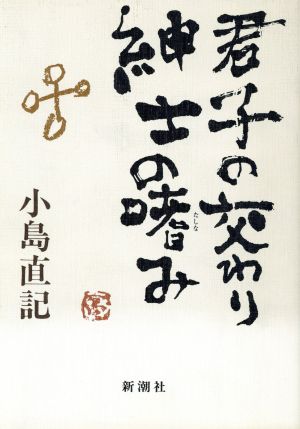 君子の交わり
紳士の嗜み
たしな
小島直記
新潮社